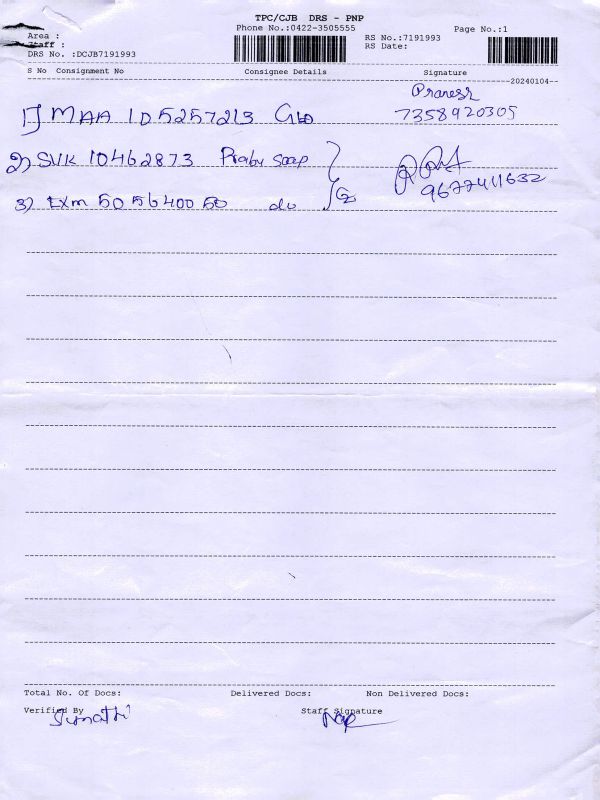 TPC/CJB DRS - PNP
Phone No.:0422-3505555
Page No.:1
Area :
RS No.:7191993
Staff :
RS Date:
DRS No. :DCJB7191993
S No Consignment No Consignee Details Signature
20240104
1) MAA 105257213
Pranesh
7358920305
2) SVK 10462873 Prabu Soap
9677411632
3) EXM 505640050 do
Total No. Of Docs: Delivered Docs: Non Delivered Docs:
Verified By Staff Signature
Sumathi